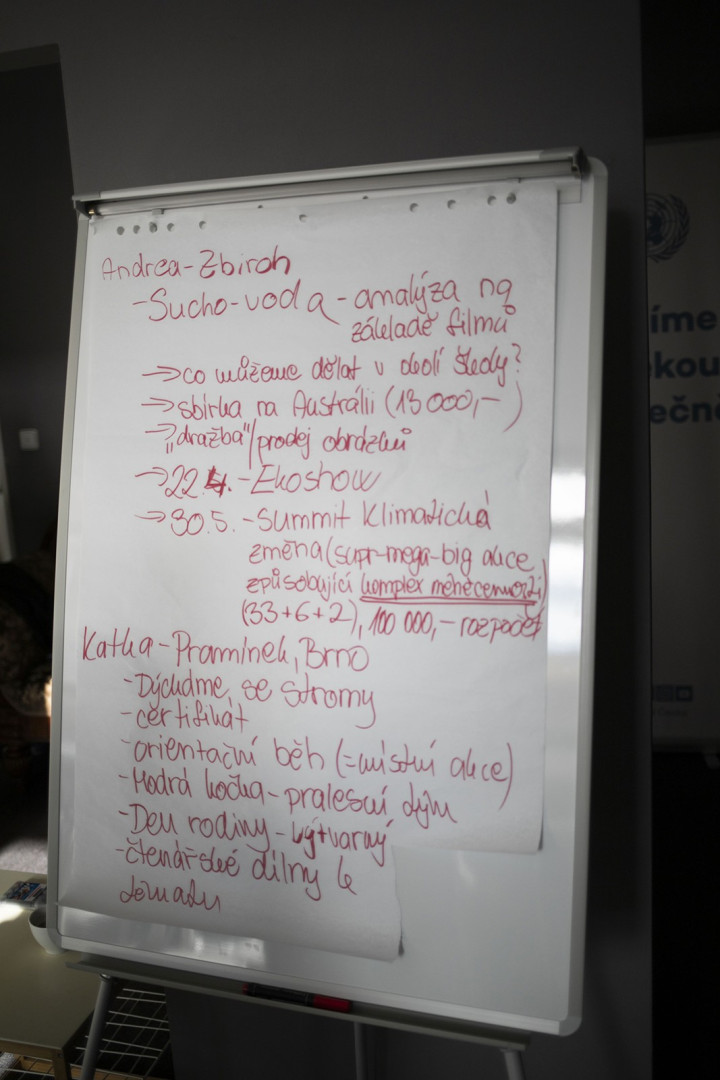 Andrea-Zbiroh
-Sucho-voda-analýza na
základě filmů
→co můžeme dělat v okolí školy?
→sbírka na Austrálii (13 000,-)
→„dražba"/prodej obrázků
→22.4.-Ekoshow
→30.5.-Summit Klimatická
změna (supr-mega-big akce
způsobující komplex méněcennosti)
(33+6+2), 100 000,-rozpočet
Katka-Pramínek, Brno
-Dýcháme se stromy
-certifikát
-orientační běh (=místní akce)
-Modrá kočka-pralesní dým
-Den rodiny-výtvarný
-čtenářské dílny k
tématu
íme
kou
ečn